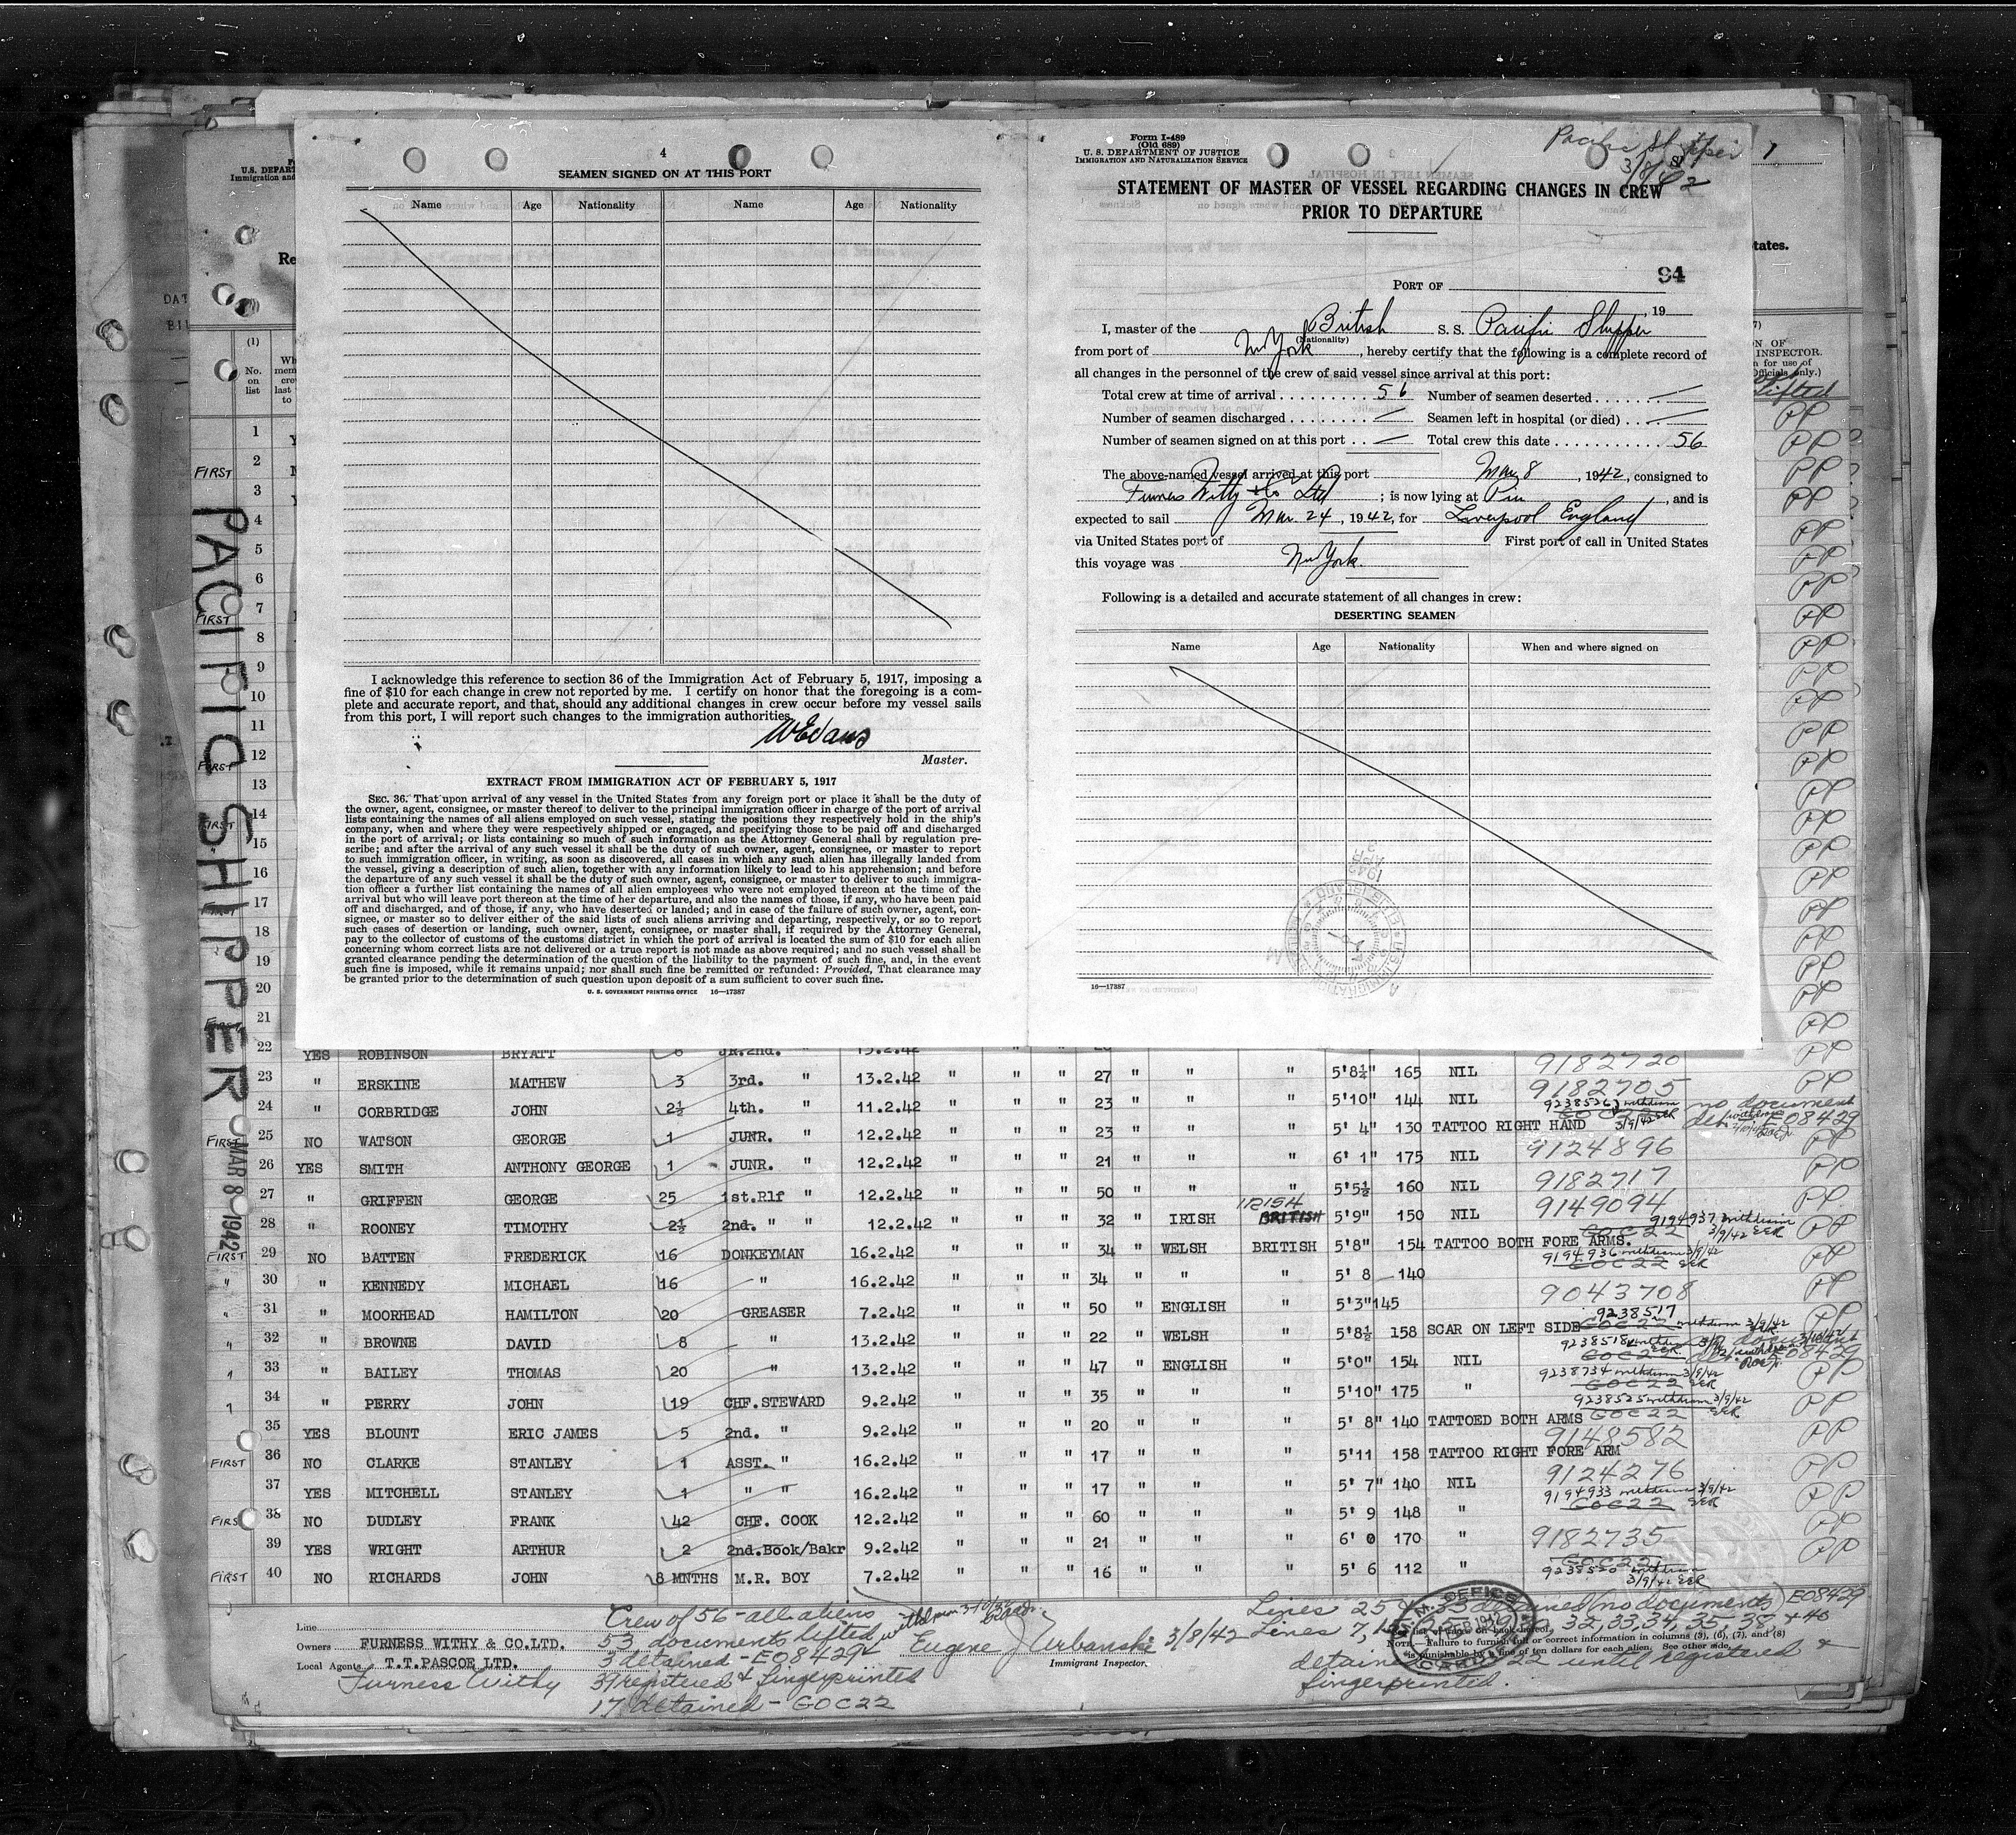 4
SEAMEN SIGNED ON AT THIS PORT
Name Age Nationality Name Age Nationality
I acknowledge this reference to section 36 of the Immigration Act of February 5, 1917, imposing a
fine of $10 for each change in crew not reported by me. I certify on honor that the foregoing is a com-
plete and accurate report, and that, should any additional changes in crew occur before my vessel sails
from this port, I will report such changes to the immigration authorities.
WEvans
Master.
EXTRACT FROM IMMIGRATION ACT OF FEBRUARY 5, 1917
SEC. 36. That upon arrival of any vessel in the United States from any foreign port or place it shall be the duty of
the owner, agent, consignee, or master thereof to deliver to the principal immigration officer in charge of the port of arrival
lists containing the names of all aliens employed on such vessel, stating the positions they respectively hold in the ship's
company, when and where they were respectively shipped or engaged, and specifying those to be paid off and discharged
in the port of arrival; or lists containing so much of such information as the Attorney General shall by regulation pre-
scribe; and after the arrival of any such vessel it shall be the duty of such owner, agent, consignee, or master to report
to such immigration officer, in writing, as soon as discovered, all cases in which any such alien has illegally landed from
the vessel, giving a description of such alien, together with any information likely to lead to his apprehension; and before
the departure of any such vessel it shall be the duty of such owner, agent, consignee, or master to deliver to such immigra-
tion officer a further list containing the names of all alien employees who were not employed thereon at the time of the
arrival but who will leave port thereon at the time of her departure, and also the names of those, if any, who have been paid
off and discharged, and of those, if any, who have deserted or landed; and in case of the failure of such owner, agent, con-
signee, or master so to deliver either of the said lists of such aliens arriving and departing, respectively, or so to report
such cases of desertion or landing, such owner, agent, consignee, or master shall, if required by the Attorney General,
pay to the collector of customs of the customs district in which the port of arrival is located the sum of $10 for each alien
concerning whom correct lists are not delivered or a true report is not made as above required; and no such vessel shall be
granted clearance pending the determination of the question of the liability to the payment of such fine, and, in the event
such fine is imposed, while it remains unpaid; nor shall such fine be remitted or refunded: Provided, That clearance may
be granted prior to the determination of such question upon deposit of a sum sufficient to cover such fine.
U. S. GOVERNMENT PRINTING OFFICE 16—17387
Form I-489
(Old 689)
U. S. DEPARTMENT OF JUSTICE
IMMIGRATION AND NATURALIZATION SERVICE
Pacific Shipper
3/8/42
STATEMENT OF MASTER OF VESSEL REGARDING CHANGES IN CREW
PRIOR TO DEPARTURE
94
PORT OF
, 19
I, master of the British S. S. Pacific Shipper
(Nationality)
from port of N York, hereby certify that the following is a complete record of
all changes in the personnel of the crew of said vessel since arrival at this port:
Total crew at time of arrival 56 Number of seamen deserted —
Number of seamen discharged — Seamen left in hospital (or died) —
Number of seamen signed on at this port — Total crew this date 56
The above-named vessel arrived at this port Mar 8, 1942, consigned to
Furness Withy & Co Ltd; is now lying at , and is
expected to sail Mar. 24, 1942, for Liverpool England
via United States port of First port of call in United States
this voyage was New York.
Following is a detailed and accurate statement of all changes in crew:
DESERTING SEAMEN
Name Age Nationality When and where signed on
16—17387
PACIFIC SHIPPER
MAR 8 1942
(1)
No.
on
list
1
2
3
4
5
6
7
8
9
10
11
12
13
14
15
16
17
18
19
20
21
22 YES ROBINSON BRYATT 6 JR.2nd. " 13.2.42
23 " ERSKINE MATHEW 3 3rd. " 13.2.42 " " " 27 " " " 5'8½" 165 NIL 9182720
24 " CORBRIDGE JOHN 2½ 4th. " 11.2.42 " " " 23 " " " 5'10" 144 NIL 9182705
FIRST 25 NO WATSON GEORGE 1 JUNR. " 12.2.42 " " " 23 " " " 5' 4" 130 TATTOO RIGHT HAND GOC22 no document E08429
26 YES SMITH ANTHONY GEORGE 1 JUNR. " 12.2.42 " " " 21 " " " 6' 1" 175 NIL 9124896
27 " GRIFFEN GEORGE 25 1st.Rlf " 12.2.42 " " " 50 " " " 5'5½ 160 NIL 9182717
28 " ROONEY TIMOTHY 2½ 2nd. " " 12.2.42 " " " 32 " IRISH IRISH BRITISH 5'9" 150 NIL 9149094
FIRST 29 NO BATTEN FREDERICK 16 DONKEYMAN 16.2.42 " " " 34 " WELSH BRITISH 5'8" 154 TATTOO BOTH FORE ARMS. GOC22 9194937 3/9/42
" 30 " KENNEDY MICHAEL 16 " 16.2.42 " " " 34 " " " 5' 8 140 9194936 GOC22 3/9/42
" 31 " MOORHEAD HAMILTON 20 GREASER 7.2.42 " " " 50 " ENGLISH " 5'3" 145 9043708
" 32 " BROWNE DAVID 8 " 13.2.42 " " " 22 " WELSH " 5'8½ 158 SCAR ON LEFT SIDE 9238517 GOC22 3/9/42
" 33 " BAILEY THOMAS 20 " 13.2.42 " " " 47 " ENGLISH " 5'0" 154 NIL 9238518 GOC22 E08429
" 34 " PERRY JOHN 19 CHF.STEWARD 9.2.42 " " " 35 " " " 5'10" 175 " 9238734 GOC22 3/9/42
35 YES BLOUNT ERIC JAMES 5 2nd. " 9.2.42 " " " 20 " " " 5' 8" 140 TATTOED BOTH ARMS 9238525 GOC22 3/9/42
FIRST 36 NO CLARKE STANLEY 1 ASST. " 16.2.42 " " " 17 " " " 5'11 158 TATTOO RIGHT FORE ARM 9148582
37 YES MITCHELL STANLEY 1 " " 16.2.42 " " " 17 " " " 5' 7" 140 NIL 9124276
FIRST 38 NO DUDLEY FRANK 42 CHF. COOK 12.2.42 " " " 60 " " " 5' 9 148 " 9194933 GOC22 3/9/42
39 YES WRIGHT ARTHUR 2 2nd.Book/Bakr 9.2.42 " " " 21 " " " 6' 0 170 " 9182735
FIRST 40 NO RICHARDS JOHN 8 MNTHS M.R. BOY 7.2.42 " " " 16 " " " 5' 6 112 " GOC22 9238520 3/9/42
Line
Owners FURNESS WITHY & CO.LTD.
Local Agents T.T.PASCOE LTD.
Furness Withy
Crew of 56 - all aliens
53 documents lifted
3 detained - E08429
39 registered & fingerprinted
17 detained - GOC22
Eugene J Urbanski 3/8/42
Immigrant Inspector.
Lines 25 & 33 detained (no documents) E08429
Lines 7, 32, 33, 34, 35, 38 & 40
detained until registered &
fingerprinted.